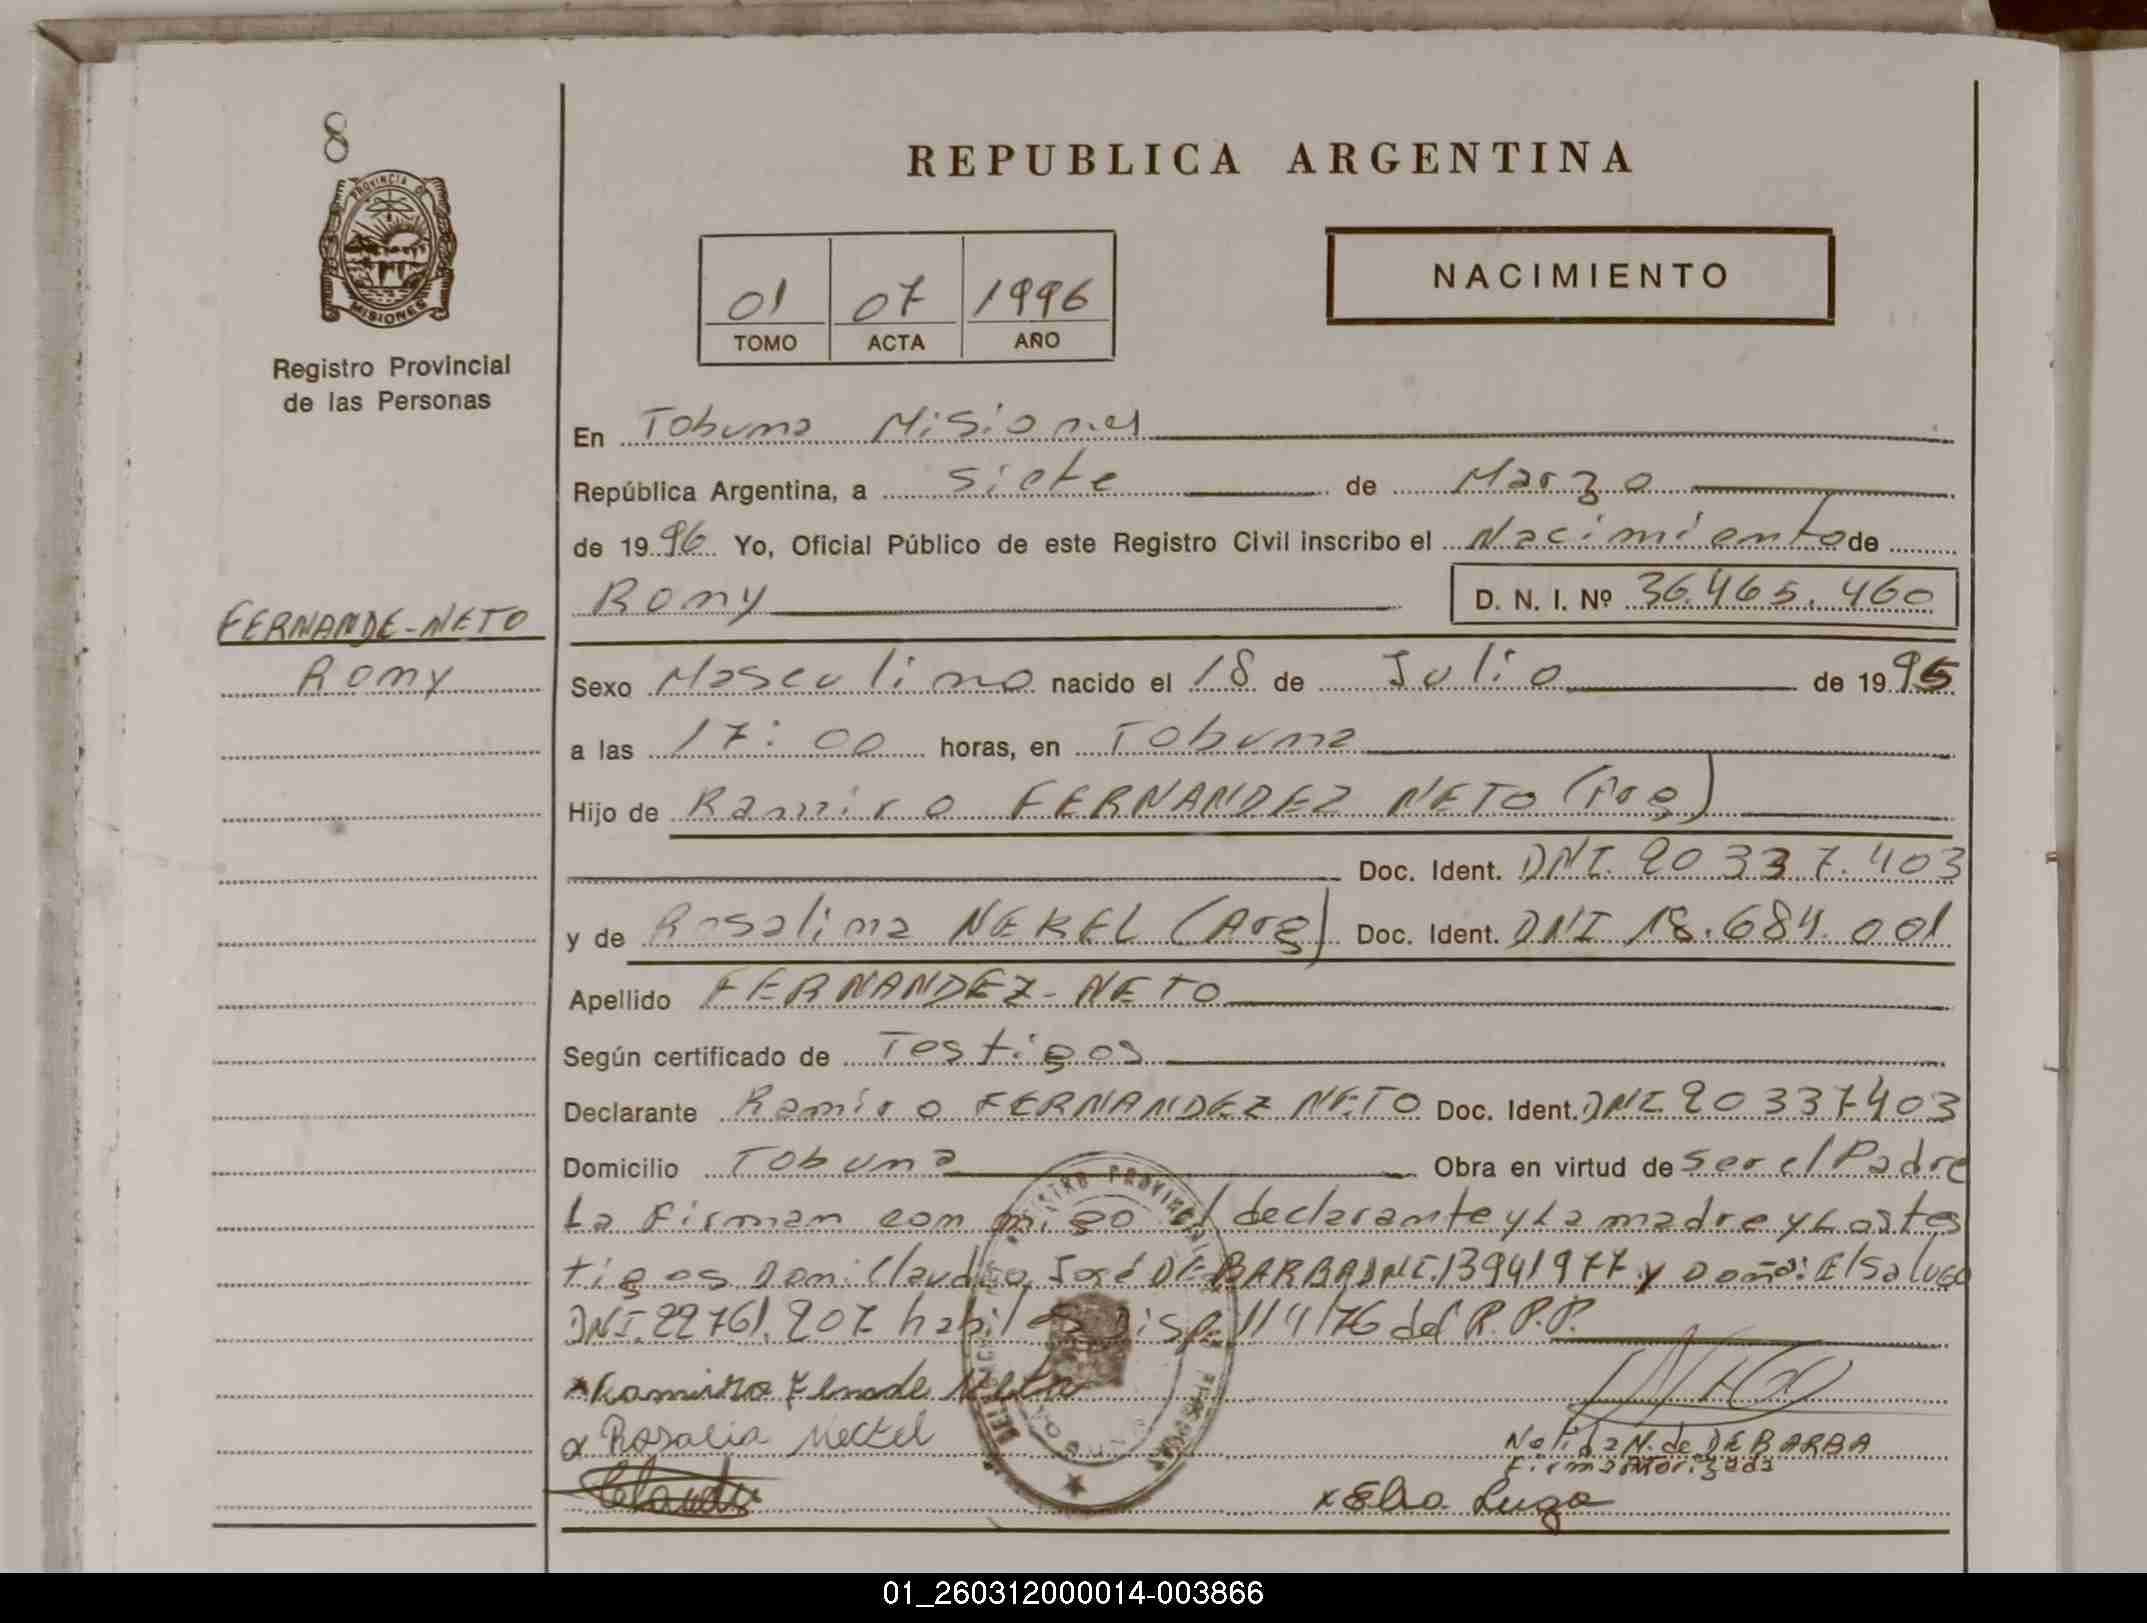 8
PROVINCIA D
MISIONES
Registro Provincial
de las Personas
REPUBLICA ARGENTINA
NACIMIENTO
01 07 1996
TOMO ACTA AÑO
En Tobuna Misiones
República Argentina, a siete de Marzo
de 1996 Yo, Oficial Público de este Registro Civil inscribo el Nacimiento de
Romy D. N. I. Nº 36.465.460
FERNANDE-NETO
Romy
Sexo Masculino nacido el 18 de Julio de 1995
a las 17:00 horas, en Tobuna
Hijo de Ramiro FERNANDEZ NETO (Arg)
Doc. Ident. DNI. 20 337.403
y de Rosalina NEKEL (Arg) Doc. Ident. DNI 18.684.001
Apellido FERNANDEZ-NETO
Según certificado de Testigos
Declarante Ramiro FERNANDEZ NETO Doc. Ident. DNI 20337403
Domicilio Tobuna Obra en virtud de ser el Padre
La Firman conmigo el declarante y La madre y Los tes
tigos Don: Claudio José DE BARBA DNI.13941977 y Doña: Elsa Lugo
DNI.22761.207 habil es Disp. 114/76 del R.P.P.
x Ramiro Fernande Neto
x Rosalia Neckel
Nelida N. de DE BARBA
Firma Autorizada
x Elsa Lugo
01_260312000014-003866